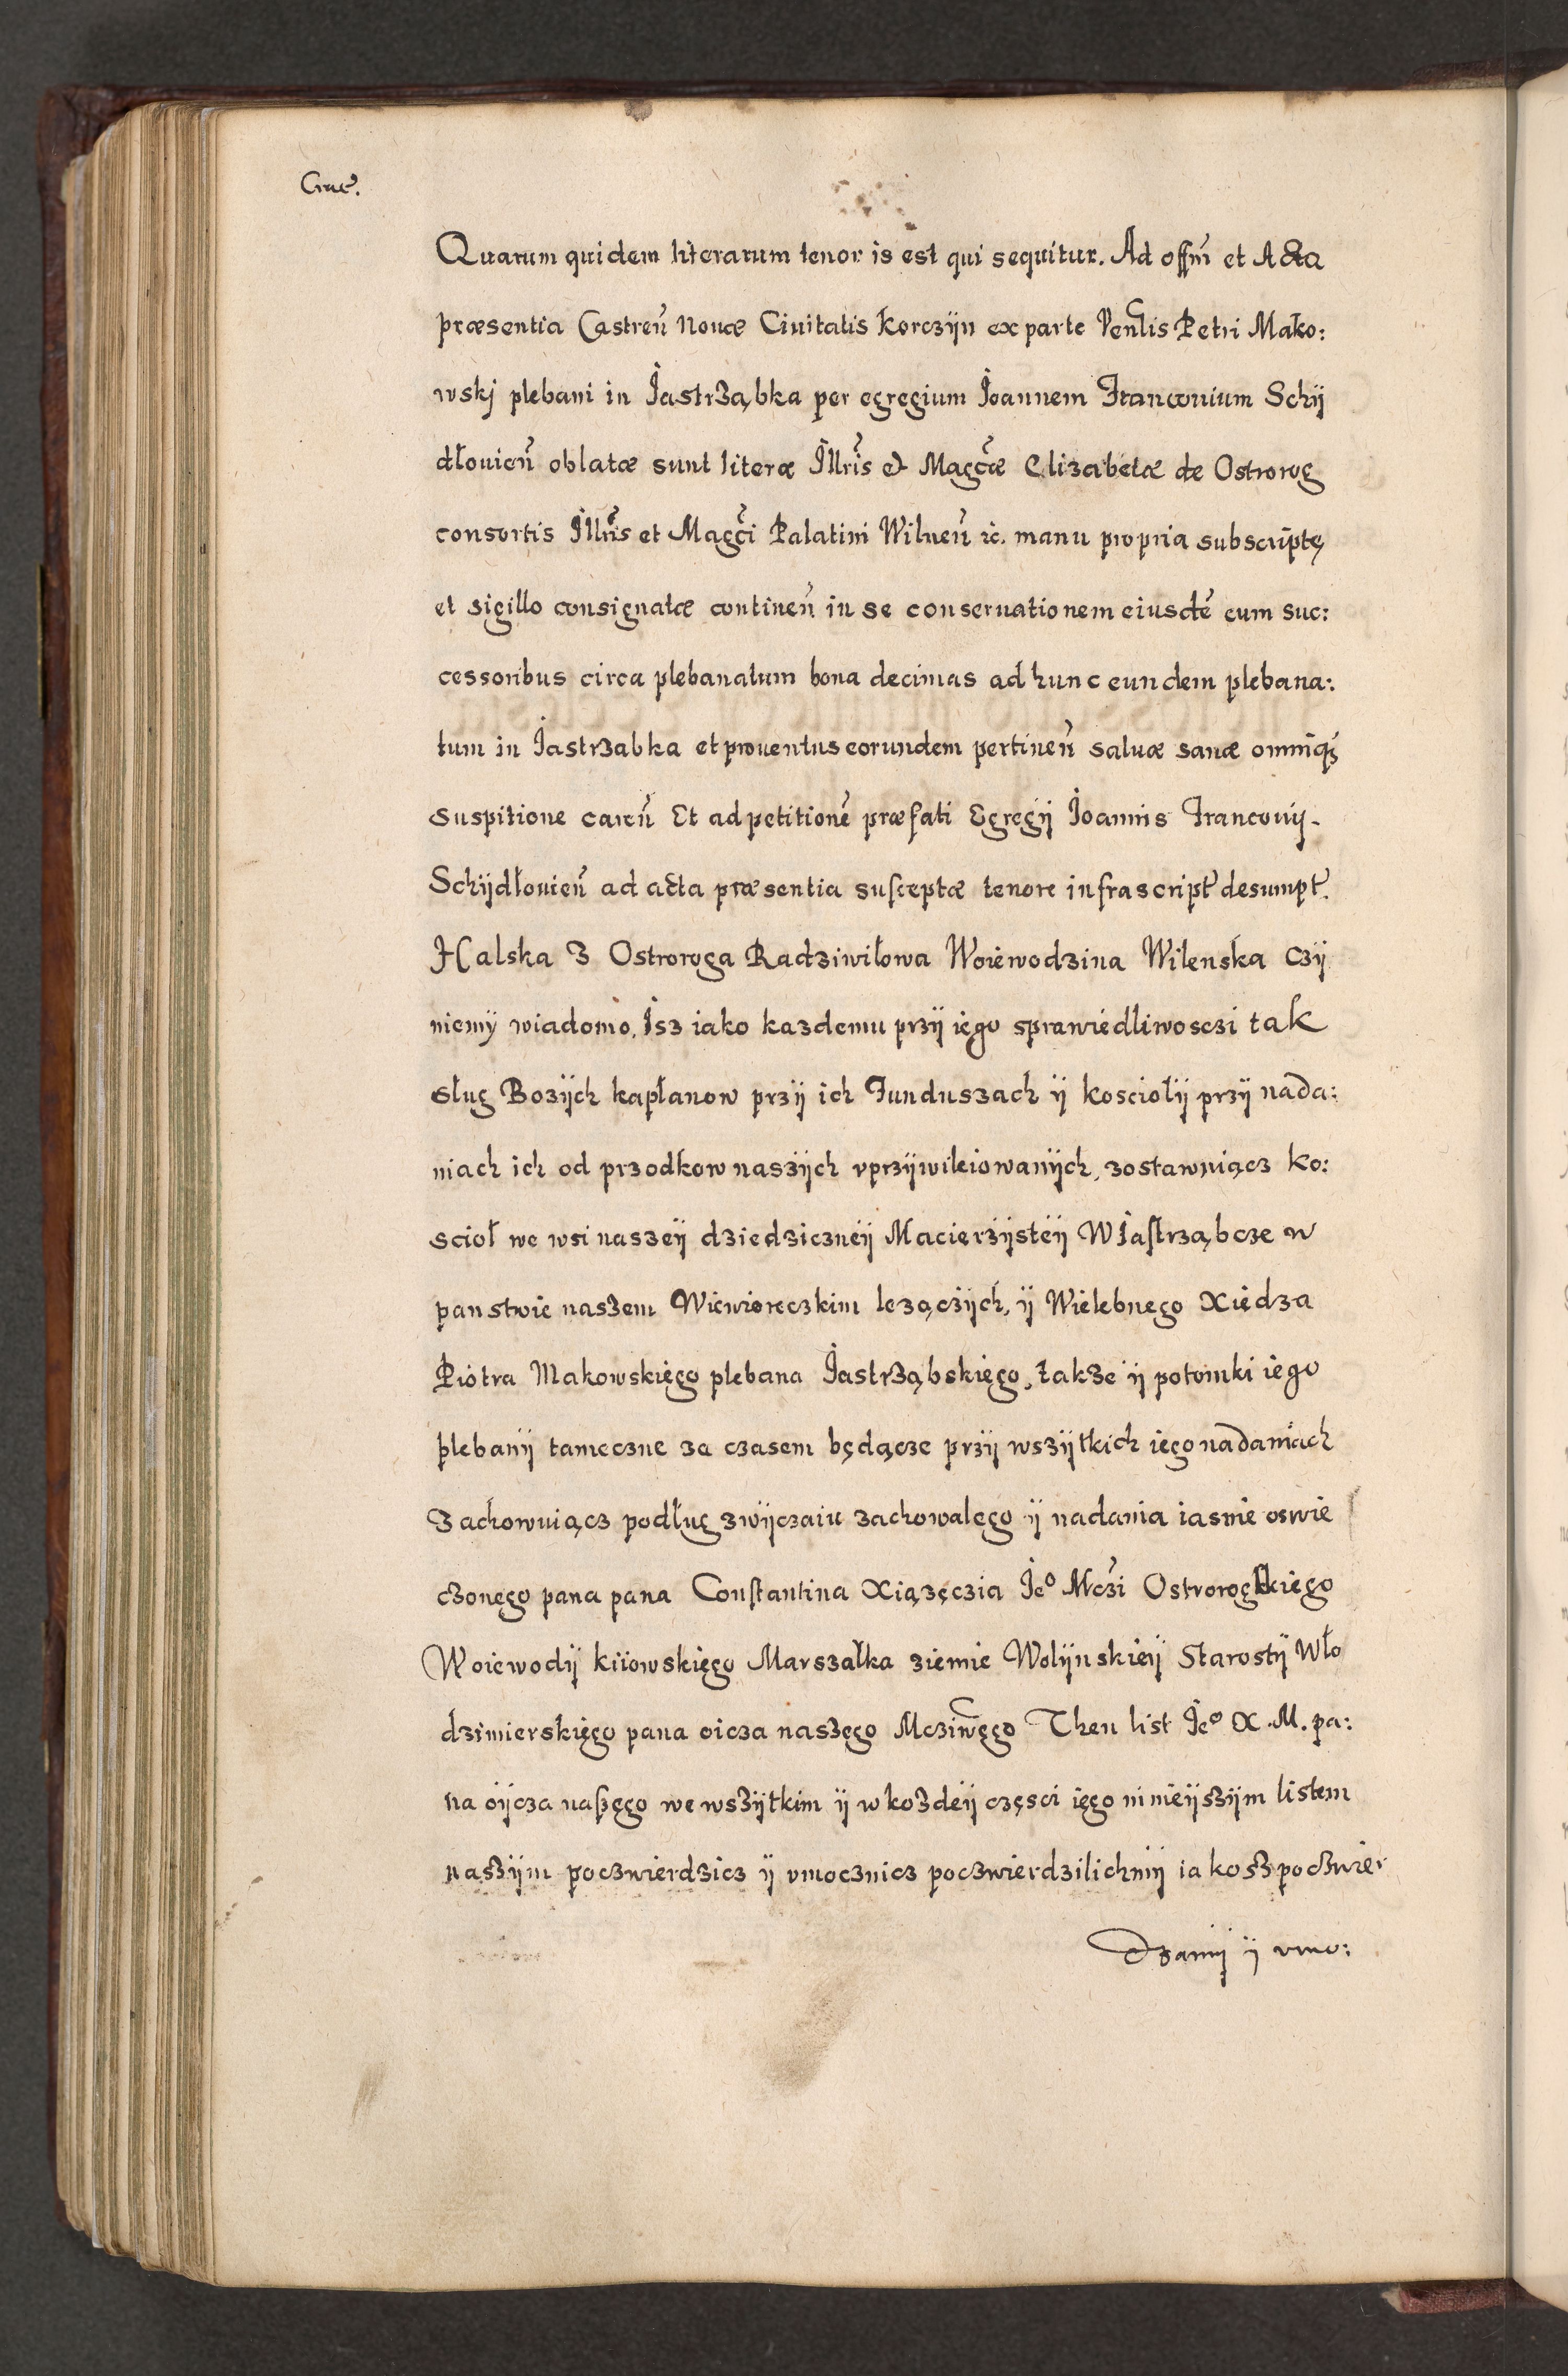 Quarum quidem literarum tenor is est qui sequitur. Ad offm̃ et Acta
præsentia Castreñ Nouæ Ciuitatis Korczÿn ex parte Venlis Petri Mako:
wskj plebani in Jastrząbka per egregium Joannem Franconium Schÿ
dłouieñ oblatæ sunt literæ Jllris̃ et Magcæ̃ Elizabetæ de Ostrorog
consortis Jllris̃ et Magci̇̃ Palatini Wilneñ ꝛc. manu propria subscriptę
et sigillo consignatæ contineñ in se conseruationem eiusdẽ cum suc:
cessoribus circa plebanatum bona decimas ad hunc eundem plebana:
tum in Jastrzabka et prouentus eorundem pertineñ saluæ sanæ omniq;
suspitione careñ Et ad petitionẽ præfati Egregÿ Joannis Franconÿ-
Schÿdłouieñ ad acta præsentia susceptæ tenore infrascript̃ desumpt̃.
Halska z Ostroroga Radziwiłowa Woiewodzina Wilenska Czÿ
niemÿ wiadomo. Jsz iako kazdemu przÿ iego sprawiedliwosczi tak
sług Bozÿch kapłanow przÿ ich Funduszach ÿ kosciołÿ przÿ nada:
niach ich od przodkow naszÿch vprzÿwileiowanÿch, zostawuiącz ko:
scioł we wsi naszeÿ dziedziczneÿ Macierzÿsteÿ W Jastrząbcze w
panstwie naszem Wiewioreczkim lezączÿch, ÿ Wielebnego Xiędza
Piotra Makowskięgo plebana Jastrząbskięgo, takze ÿ potomki iego
plebanÿ tameczne za czasem będącze przÿ wszÿtkich iego nadaniach
zachowuiącz podług zwÿczaiu zachowalego ÿ nadania iasnie oswie
czonego pana pana Constantina Xiązęczia Jeº Mczi̇̃ Ostrorogskiego
Woiewodÿ kiiowskięgo Marszałka ziemie Wolÿnskieÿ Starostÿ Wło
dzimierskięgo pana oicza naszęgo Mcziwęgo Then list Jeº X. M. pa:
na oÿcza naszęgo we wszÿtkim ÿ w kozdeÿ częsci ięgo ninieÿszÿm listem
naszÿm poczwierdzicz ÿ vmocznicz poczwierdzilichmÿ iakosz poczwier
dzamÿ ÿ vmo: